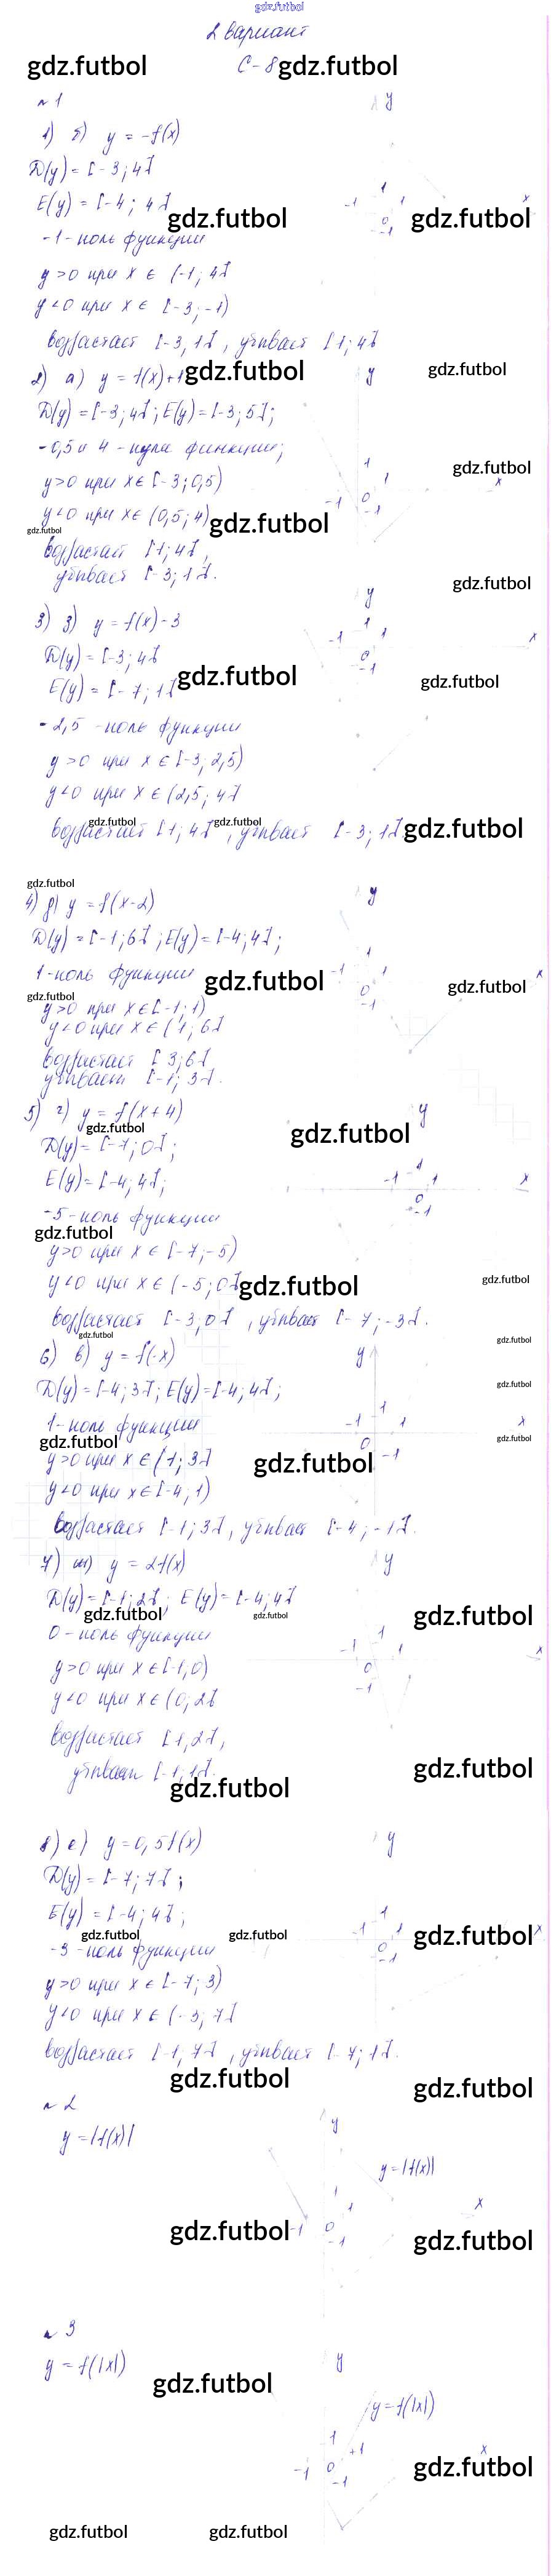 gdz.futbol
2 вариант
gdz.futbol С-8 gdz.futbol
№1
1) б) y = -f(x)
D(y) = [-3; 4]
E(y) = [-4; 4]
gdz.futbol gdz.futbol
-1 - ноль функции
y > 0 при x ∈ (-1; 4]
y < 0 при x ∈ [-3; -1)
возрастает [-3, 1], убывает [1; 4]
2) а) y = f(x)+1 gdz.futbol gdz.futbol
D(y) = [-3; 4]; E(y) = [-3; 5];
-0,5 и 4 - нули функции;
gdz.futbol
y > 0 при x ∈ [-3; 0,5)
y < 0 при x ∈ (0,5; 4)
gdz.futbol gdz.futbol
возрастает [1; 4],
убывает [-3; 1].
gdz.futbol
3) з) y = f(x) - 3
D(y) = [-3; 4]
E(y) = [-7; 1] gdz.futbol gdz.futbol
-2,5 - ноль функции
y > 0 при x ∈ [-3; 2,5)
y < 0 при x ∈ (2,5; 4]
gdz.futbol gdz.futbol
возрастает [1; 4], убывает [-3; 1] gdz.futbol
gdz.futbol
4) д) y = f(x-2)
D(y) = [-1; 6]; E(y) = [-4; 4];
1 - ноль функции gdz.futbol gdz.futbol
gdz.futbol
y > 0 при x ∈ [-1; 1)
y < 0 при x ∈ (1; 6]
возрастает [3; 6]
убывает [-1; 3].
5) г) y = f(x+4)
gdz.futbol gdz.futbol
D(y) = [-7; 0];
E(y) = [-4; 4];
-5 - ноль функции
gdz.futbol
y > 0 при x ∈ [-7; -5)
y < 0 при x ∈ (-5; 0] gdz.futbol gdz.futbol
возрастает [-3; 0], убывает [-7; -3].
gdz.futbol gdz.futbol
6) в) y = f(-x)
D(y) = [-4; 3]; E(y) = [-4; 4];
gdz.futbol
1 - ноль функции
gdz.futbol gdz.futbol
y > 0 при x ∈ (1; 3] gdz.futbol
y < 0 при x ∈ [-4; 1)
возрастает [-1; 3], убывает [-4; -1].
7) ж) y = 2f(x)
D(y) = [-1; 2]; E(y) = [-4; 4]
gdz.futbol gdz.futbol gdz.futbol
0 - ноль функции
y > 0 при x ∈ [-1, 0)
y < 0 при x ∈ (0, 2]
возрастает [1, 2],
убывает [-1, 1].
gdz.futbol gdz.futbol
8) е) y = 0,5f(x)
D(y) = [-7; 7];
E(y) = [-4; 4];
gdz.futbol gdz.futbol gdz.futbol
-3 - ноль функции
y > 0 при x ∈ [-7; 3)
y < 0 при x ∈ (-3; 7]
возрастает [-1, 7], убывает [-7; 1].
gdz.futbol gdz.futbol
№2
y = |f(x)|
y = |f(x)|
gdz.futbol gdz.futbol
№3
y = f(|x|)
gdz.futbol
y = f(|x|)
gdz.futbol
gdz.futbol gdz.futbol